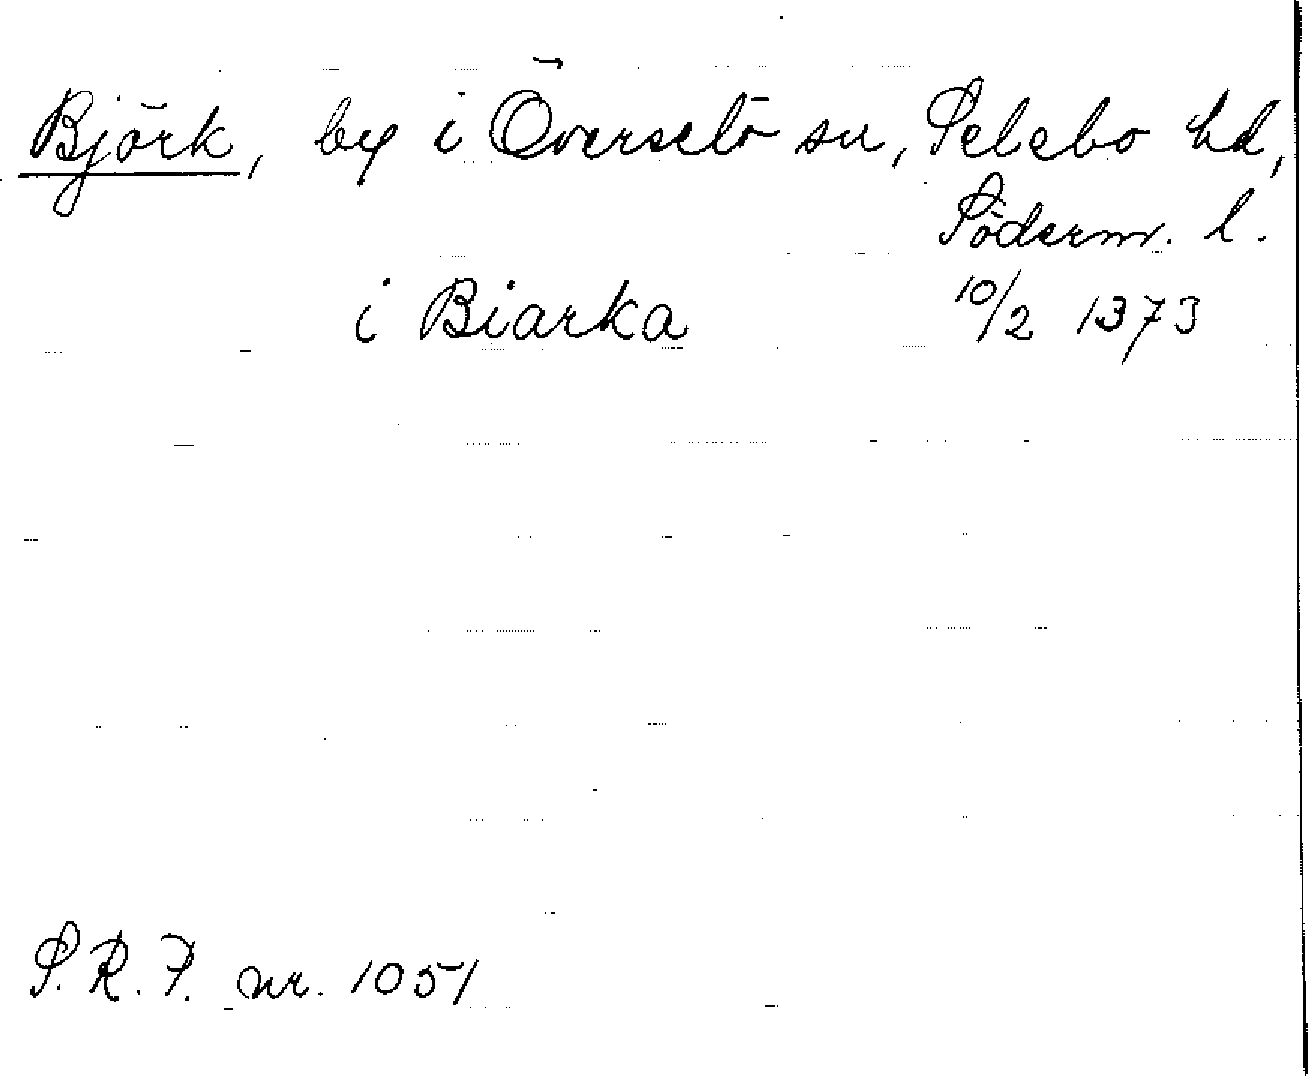 Björk, by i Överselö sn, Selebo hd,
Söderm. l.
i Biarka 10/2 1373
S.R.P. nr. 1051